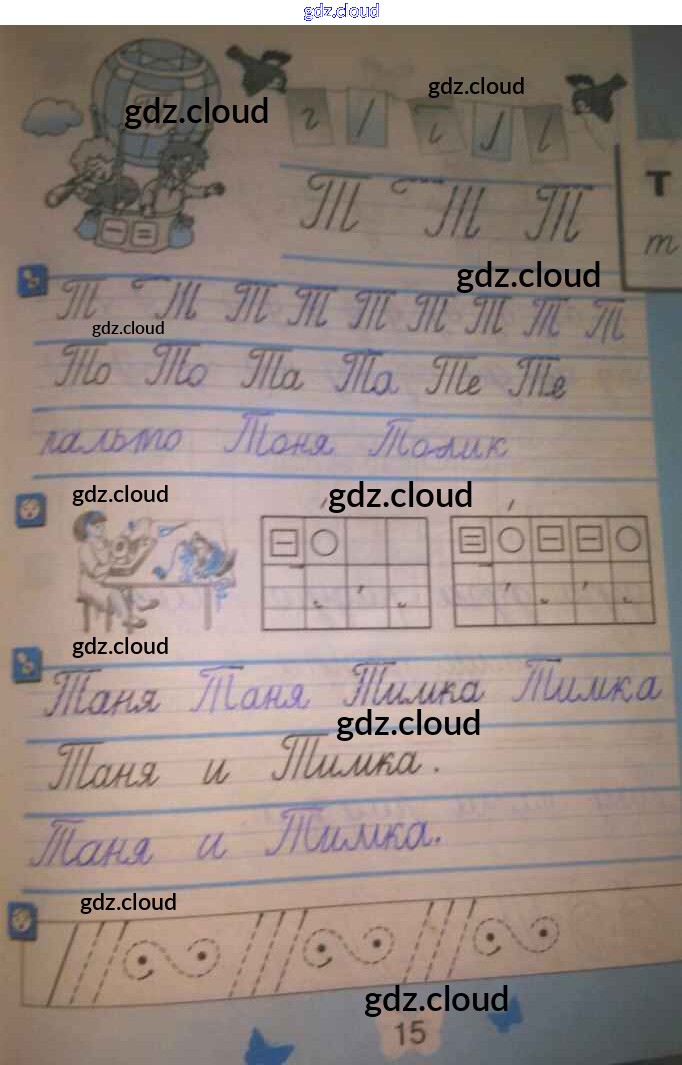 gdz.cloud
gdz.cloud
gdz.cloud
Т Т Т
Т
т
gdz.cloud
Т Т Т Т Т Т Т Т Т
gdz.cloud
То То Та Та Те Те
пальто Тоня Толик
gdz.cloud
gdz.cloud
gdz.cloud
Таня Таня Тимка Тимка
gdz.cloud
Таня и Тимка.
Таня и Тимка.
gdz.cloud
gdz.cloud
15